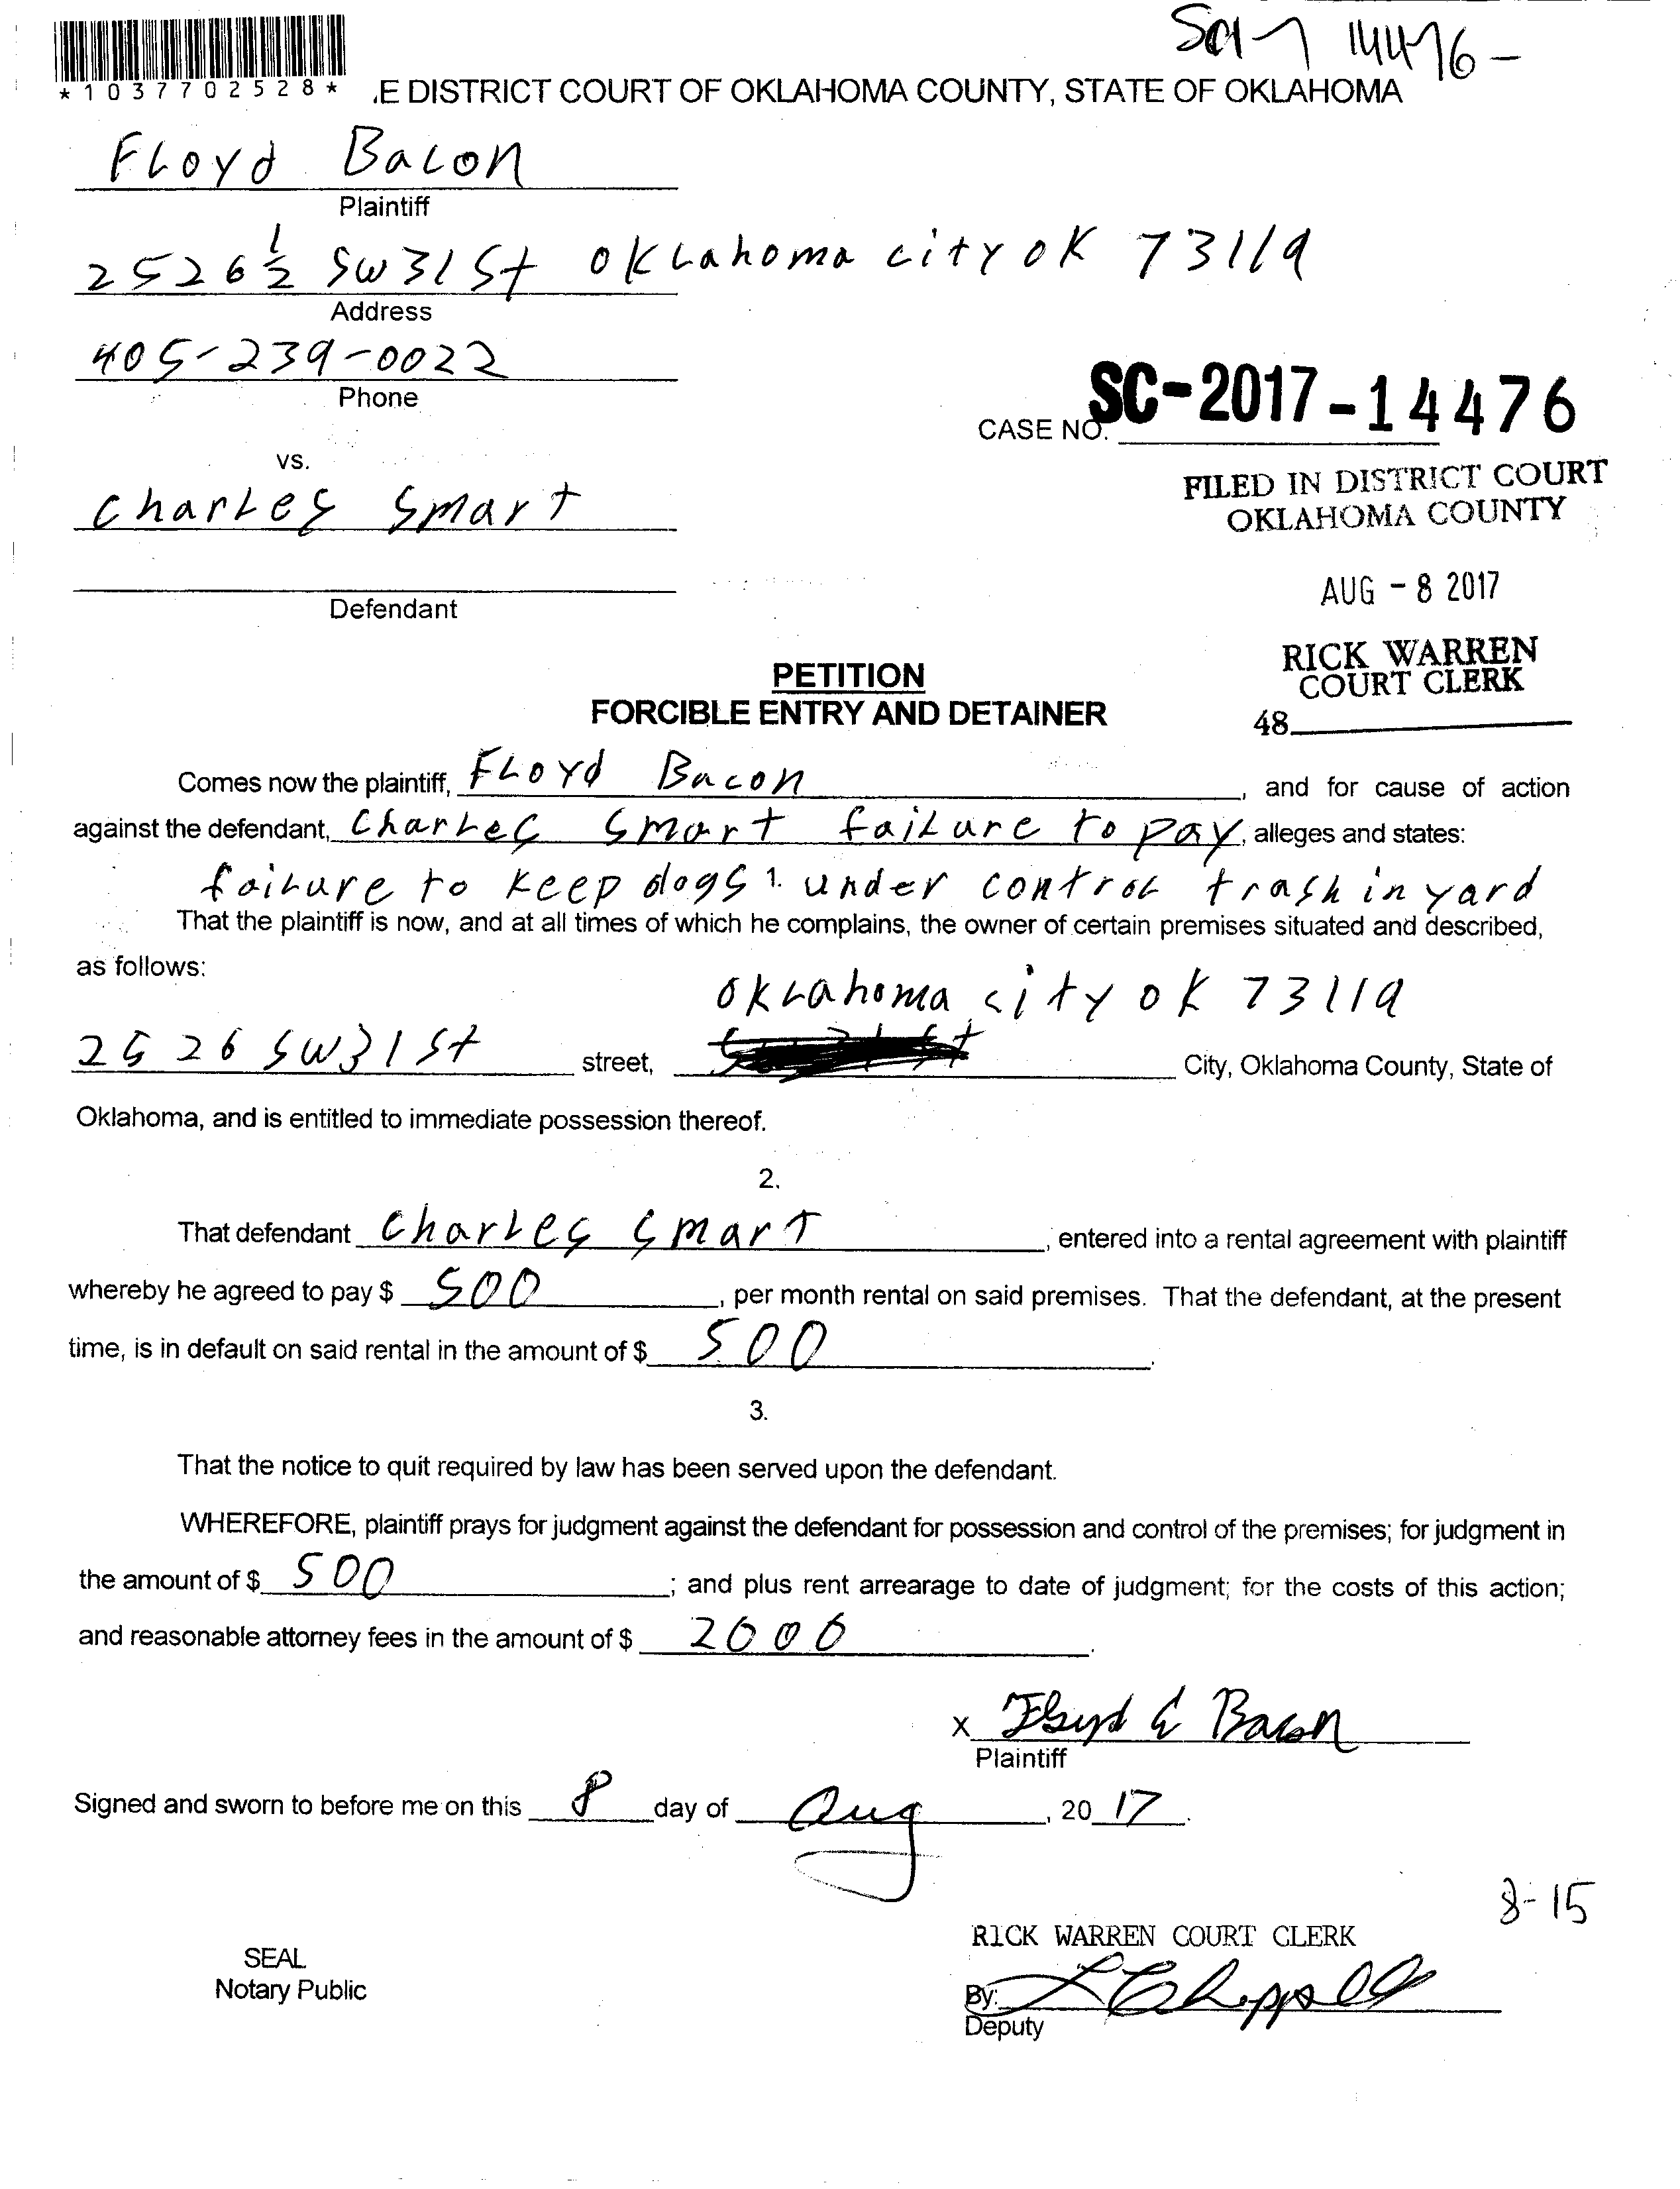 14476-
*1037702528*
.E DISTRICT COURT OF OKLAHOMA COUNTY, STATE OF OKLAHOMA
Floyd Bacon
Plaintiff
2526 1/2 SW 31 St Oklahoma city ok 73119
Address
405-239-0022
Phone
CASE NO. SC-2017-14476
vs.
FILED IN DISTRICT COURT
OKLAHOMA COUNTY
Charles Smart
AUG - 8 2017
Defendant
RICK WARREN
COURT CLERK
48
PETITION
FORCIBLE ENTRY AND DETAINER
Comes now the plaintiff, Floyd Bacon, and for cause of action
against the defendant, Charles Smart failure to pay, alleges and states:
failure to keep dogs 1. under control trash in yard
That the plaintiff is now, and at all times of which he complains, the owner of certain premises situated and described,
as follows:
Oklahoma city ok 73119
2526 SW 31 St street, City, Oklahoma County, State of
Oklahoma, and is entitled to immediate possession thereof.
2.
That defendant Charles Smart, entered into a rental agreement with plaintiff
whereby he agreed to pay $ 500, per month rental on said premises. That the defendant, at the present
time, is in default on said rental in the amount of $ 500.
3.
That the notice to quit required by law has been served upon the defendant.
WHEREFORE, plaintiff prays for judgment against the defendant for possession and control of the premises; for judgment in
the amount of $ 500; and plus rent arrearage to date of judgment; for the costs of this action;
and reasonable attorney fees in the amount of $ 2000.
X Floyd E Bacon
Plaintiff
Signed and sworn to before me on this 8 day of Aug, 20 17.
8-15
RICK WARREN COURT CLERK
SEAL
Notary Public
By: L Chappell
Deputy